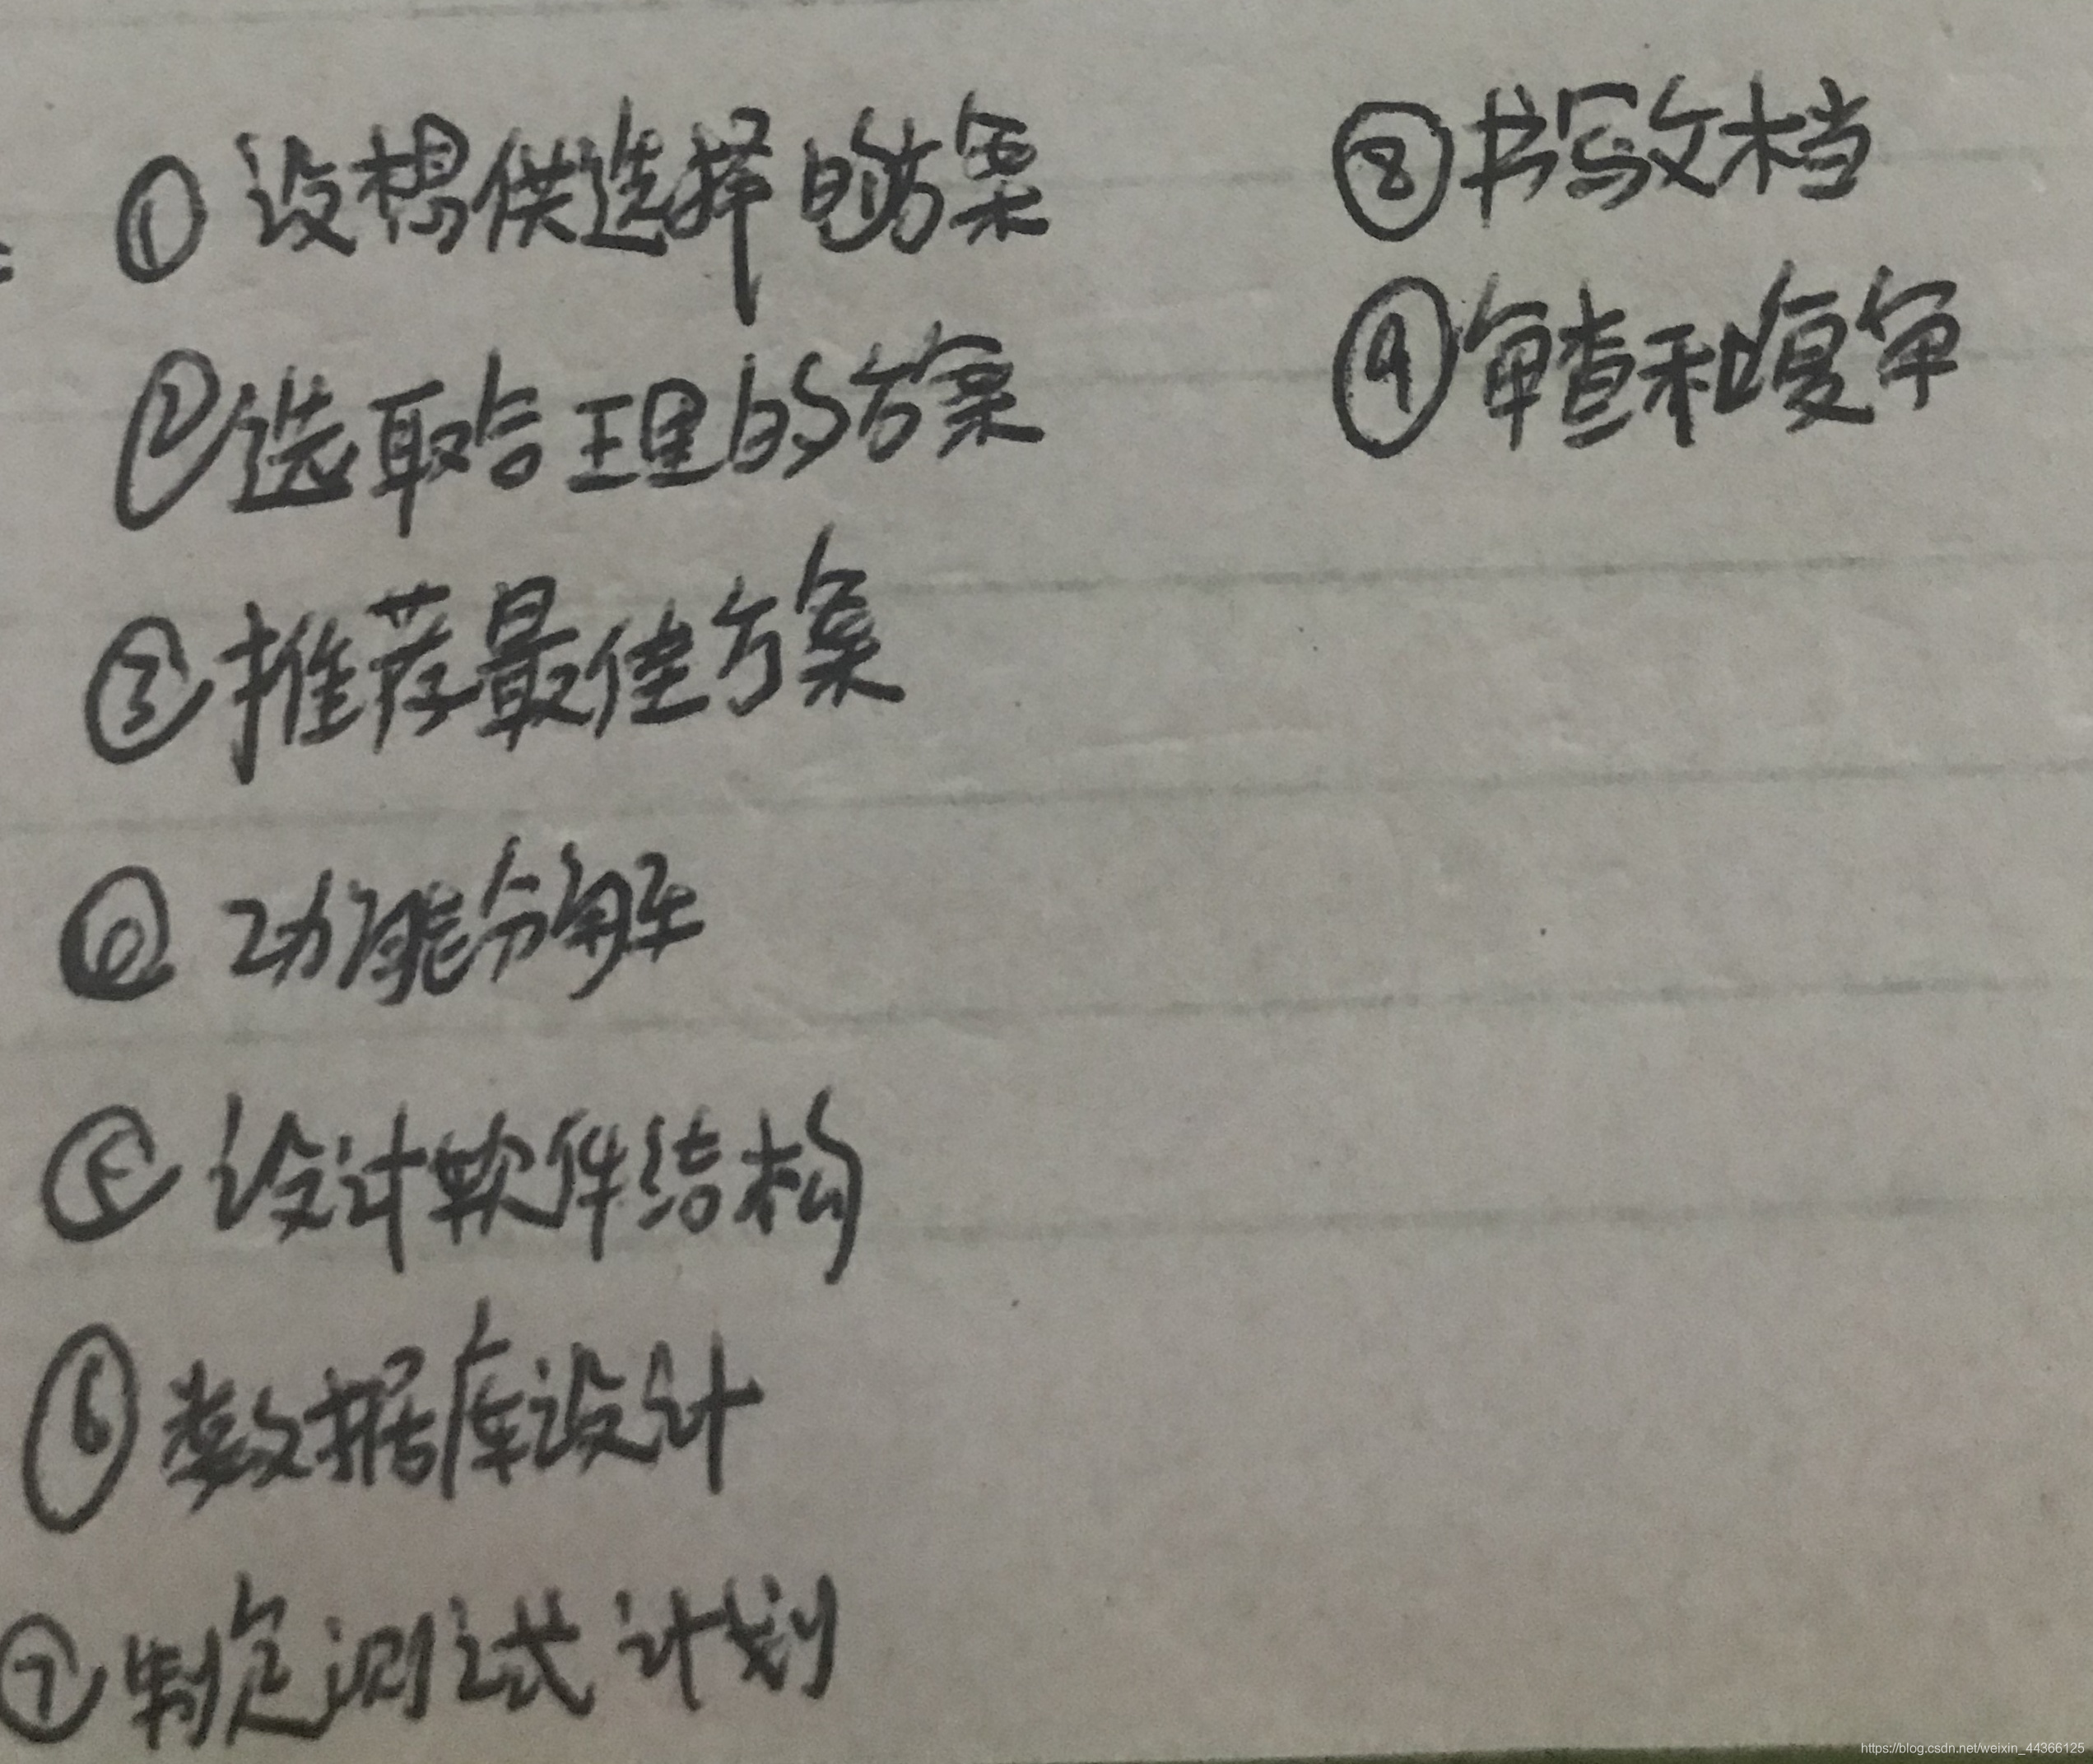 ① 设想供选择的方案
② 选取合理的方案
③ 推荐最佳方案
④ 功能分解
⑤ 设计软件结构
⑥ 数据库设计
⑦ 制定测试计划
⑧ 书写文档
⑨ 审查和复审
https://blog.csdn.net/weixin_44366125